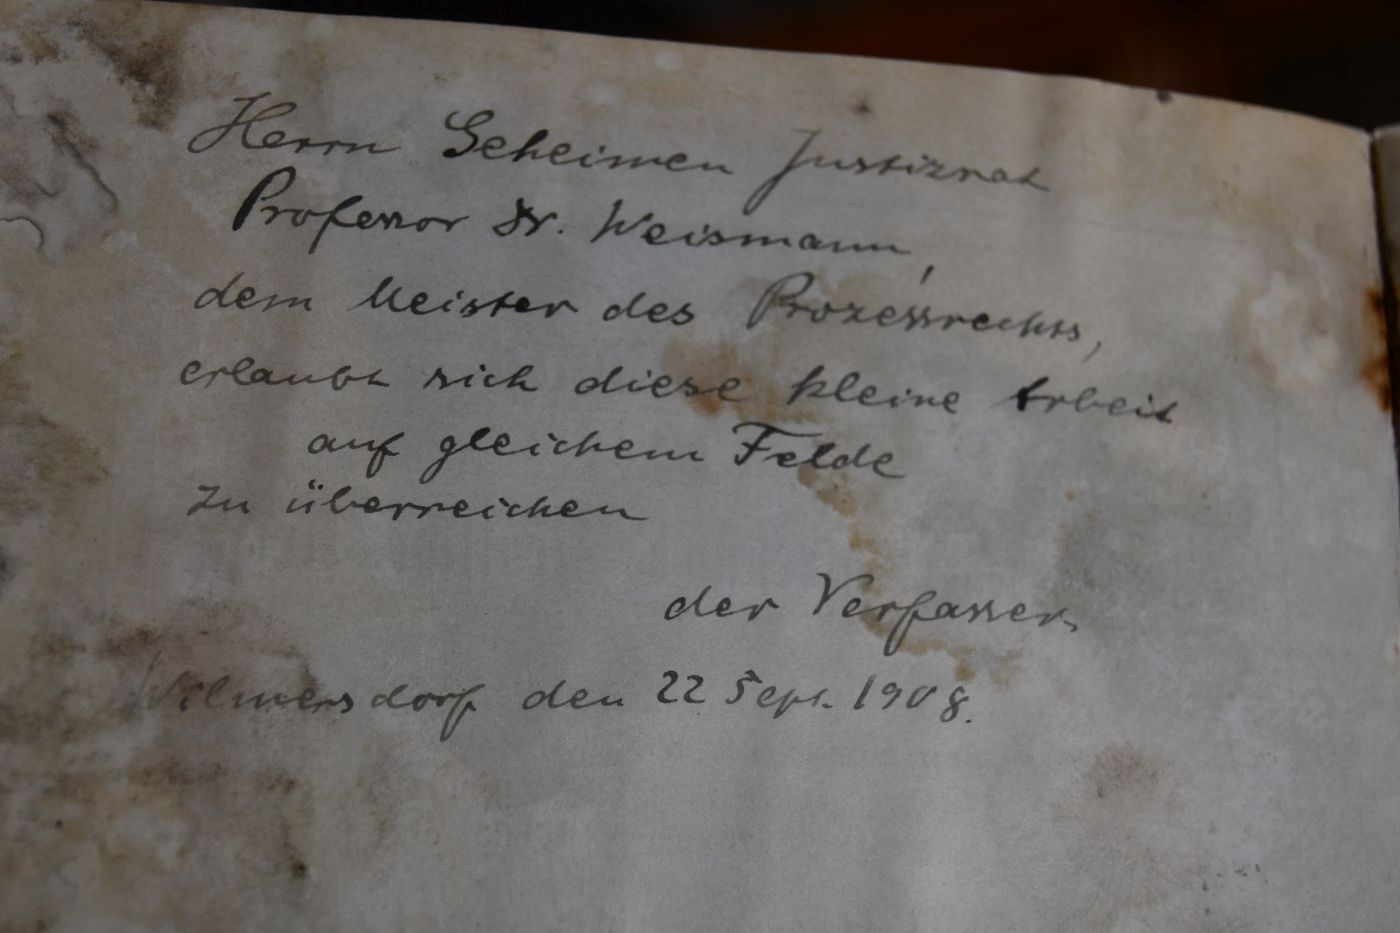 Herrn Geheimen Justizrat
Professor Dr. Weismann,
dem Meister des Prozessrechts,
erlaubt sich diese kleine Arbeit
auf gleichem Felde
zu überreichen
der Verfasser
Wilmersdorf den 22 Sept. 1908.